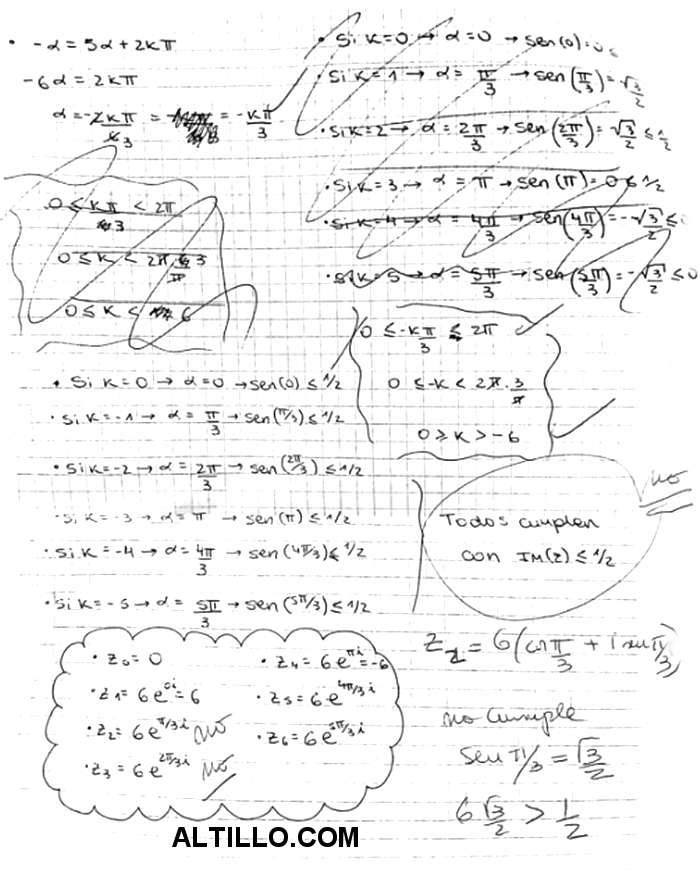 • -α = 5α + 2kπ
-6α = 2kπ
α = -2kπ/63 = = -kπ/3
• Si k=0 → α=0 → sen(0)=0≤
• Si k=1 → α = π/3 → sen(π/3) = √3/2
• Si k=2 → α = 2π/3 → sen(2π/3) = √3/2 ≤ 1/2
• Si k=3 → α = π → sen(π) = 0 ≤ 1/2
• Si k=4 → α = 4π/3 → sen(4π/3) = -√3/2 ≤
• Si k=5 → α = 5π/3 → sen(5π/3) = -√3/2 ≤ 0
0 ≤ kπ/3 < 2π
0 ≤ k < 2π 3/π
0 ≤ k < 6
0 ≤ -kπ/3 ≤ 2π
0 ≤ -k < 2π . 3/π
0 ≥ k > -6
• Si k=0 → α=0 → sen(0) ≤ 1/2
• Si k=-1 → α = π/3 → sen(π/3) ≤ 1/2
• Si k=-2 → α = 2π/3 → sen(2π/3) ≤ 1/2
• Si k=-3 → α = π → sen(π) ≤ 1/2
• Si k=-4 → α = 4π/3 → sen(4π/3) ≤ 1/2
• Si k=-5 → α = 5π/3 → sen(5π/3) ≤ 1/2
no
Todos cumplen
con IM(z) ≤ 1/2
• z0 = 0
• z1 = 6e^0i = 6
• z2 = 6e^π/3i no
• z3 = 6e^2π/3i no
• z4 = 6e^πi = -6
• z5 = 6e^4π/3i
• z6 = 6e^5π/3i
z2 = 6(cos π/3 + i sen π/3)
no cumple
sen π/3 = √3/2
6 √3/2 > 1/2
ALTILLO.COM